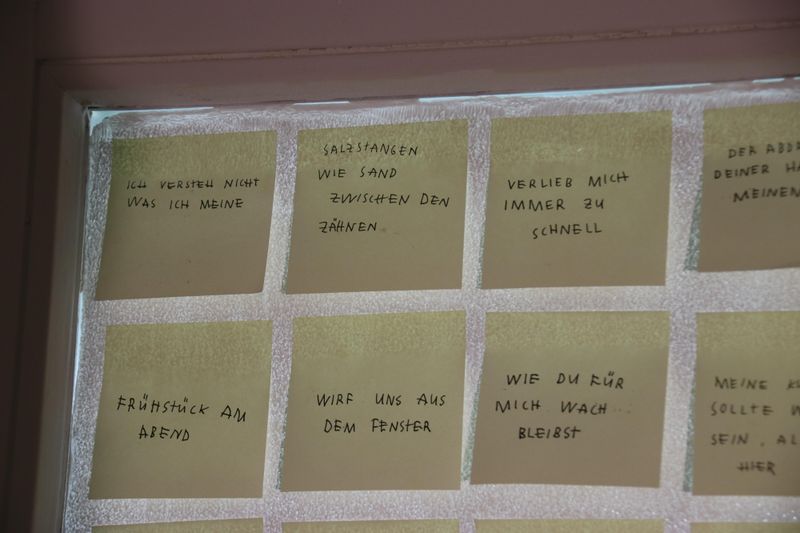 ICH VERSTEH NICHT
WAS ICH MEINE
SALZSTANGEN
WIE SAND
ZWISCHEN DEN
ZÄHNEN
VERLIEB MICH
IMMER ZU
SCHNELL
DER
DEINER
MEINEN
FRÜHSTÜCK AM
ABEND
WIRF UNS AUS
DEM FENSTER
WIE DU FÜR
MICH WACH...
BLEIBST
MEINE
SOLLTE
SEIN,
HIER